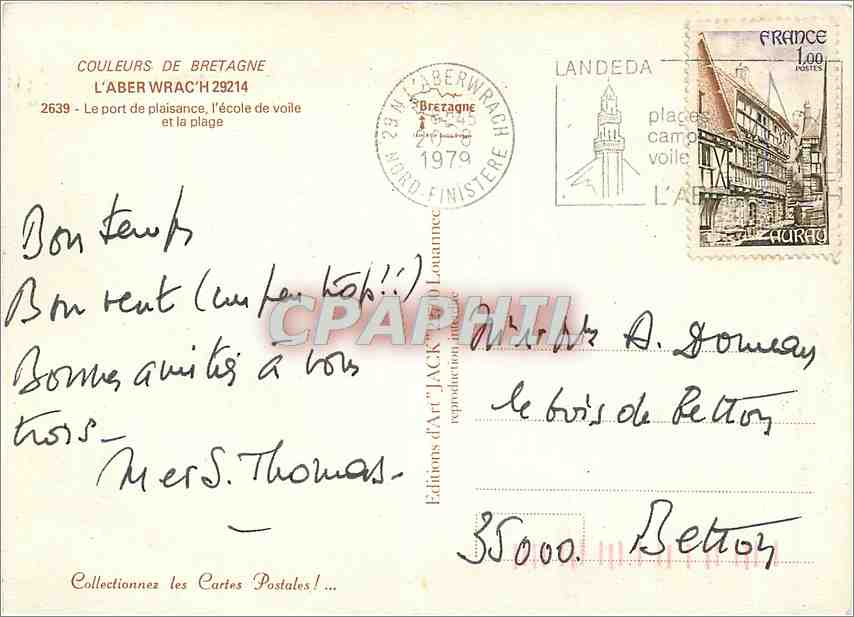 COULEURS DE BRETAGNE
L'ABER WRAC'H 29214
2639 - Le port de plaisance, l'école de voile
et la plage
Bon temps
Bon vent (un peu trop!!)
Bonnes amitiés à vous
trois -
M et S. Thomas -
Collectionnez les Cartes Postales! ...
29 N L'ABERWRACH
Bretagne
20-8
1979
NORD-FINISTERE
LANDEDA
plages
camp
voile
FRANCE
1,00
POSTES
AURAY
Editions d'Art "JACK" Louannec
reproduction interdite
CPAPHIL
A. Donneau
le bois de Betton
35000. Betton